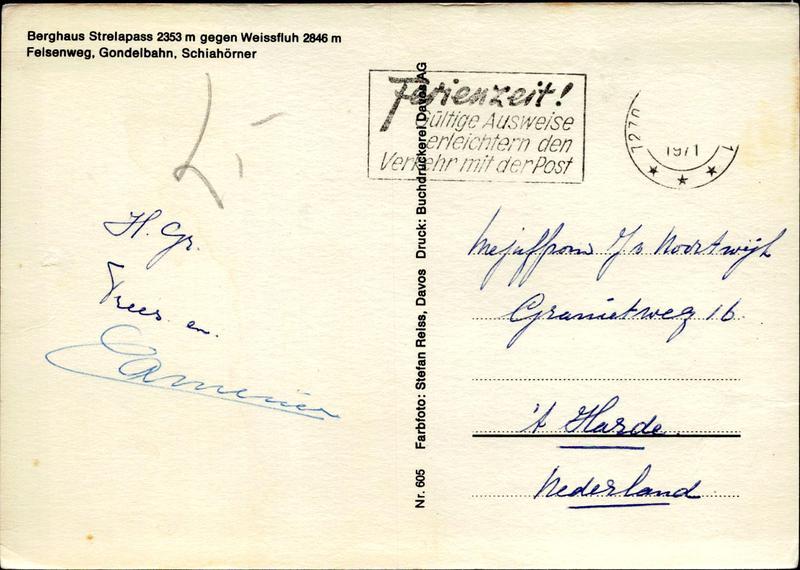 Berghaus Strelapass 2353 m gegen Weissfluh 2846 m
Felsenweg, Gondelbahn, Schiahörner
Ferienzeit!
Gültige Ausweise
erleichtern den
Verkehr mit der Post
7270
1971
H. Gr.
Trees en
Nr. 605 Farbfoto: Stefan Reiss, Davos Druck: Buchdruckerei Davos AG
Mejuffrouw J v Noortwijk
Granietweg 16
't Harde
Nederland